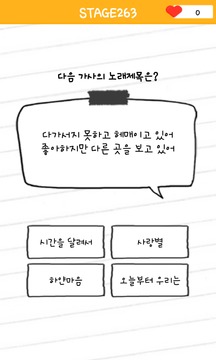 STAGE263
0
다음 가사의 노래제목은?
다가서지 못하고 헤매이고 있어
좋아하지만 다른 곳을 보고 있어
시간을 달려서
사랑별
하얀마음
오늘부터 우리는